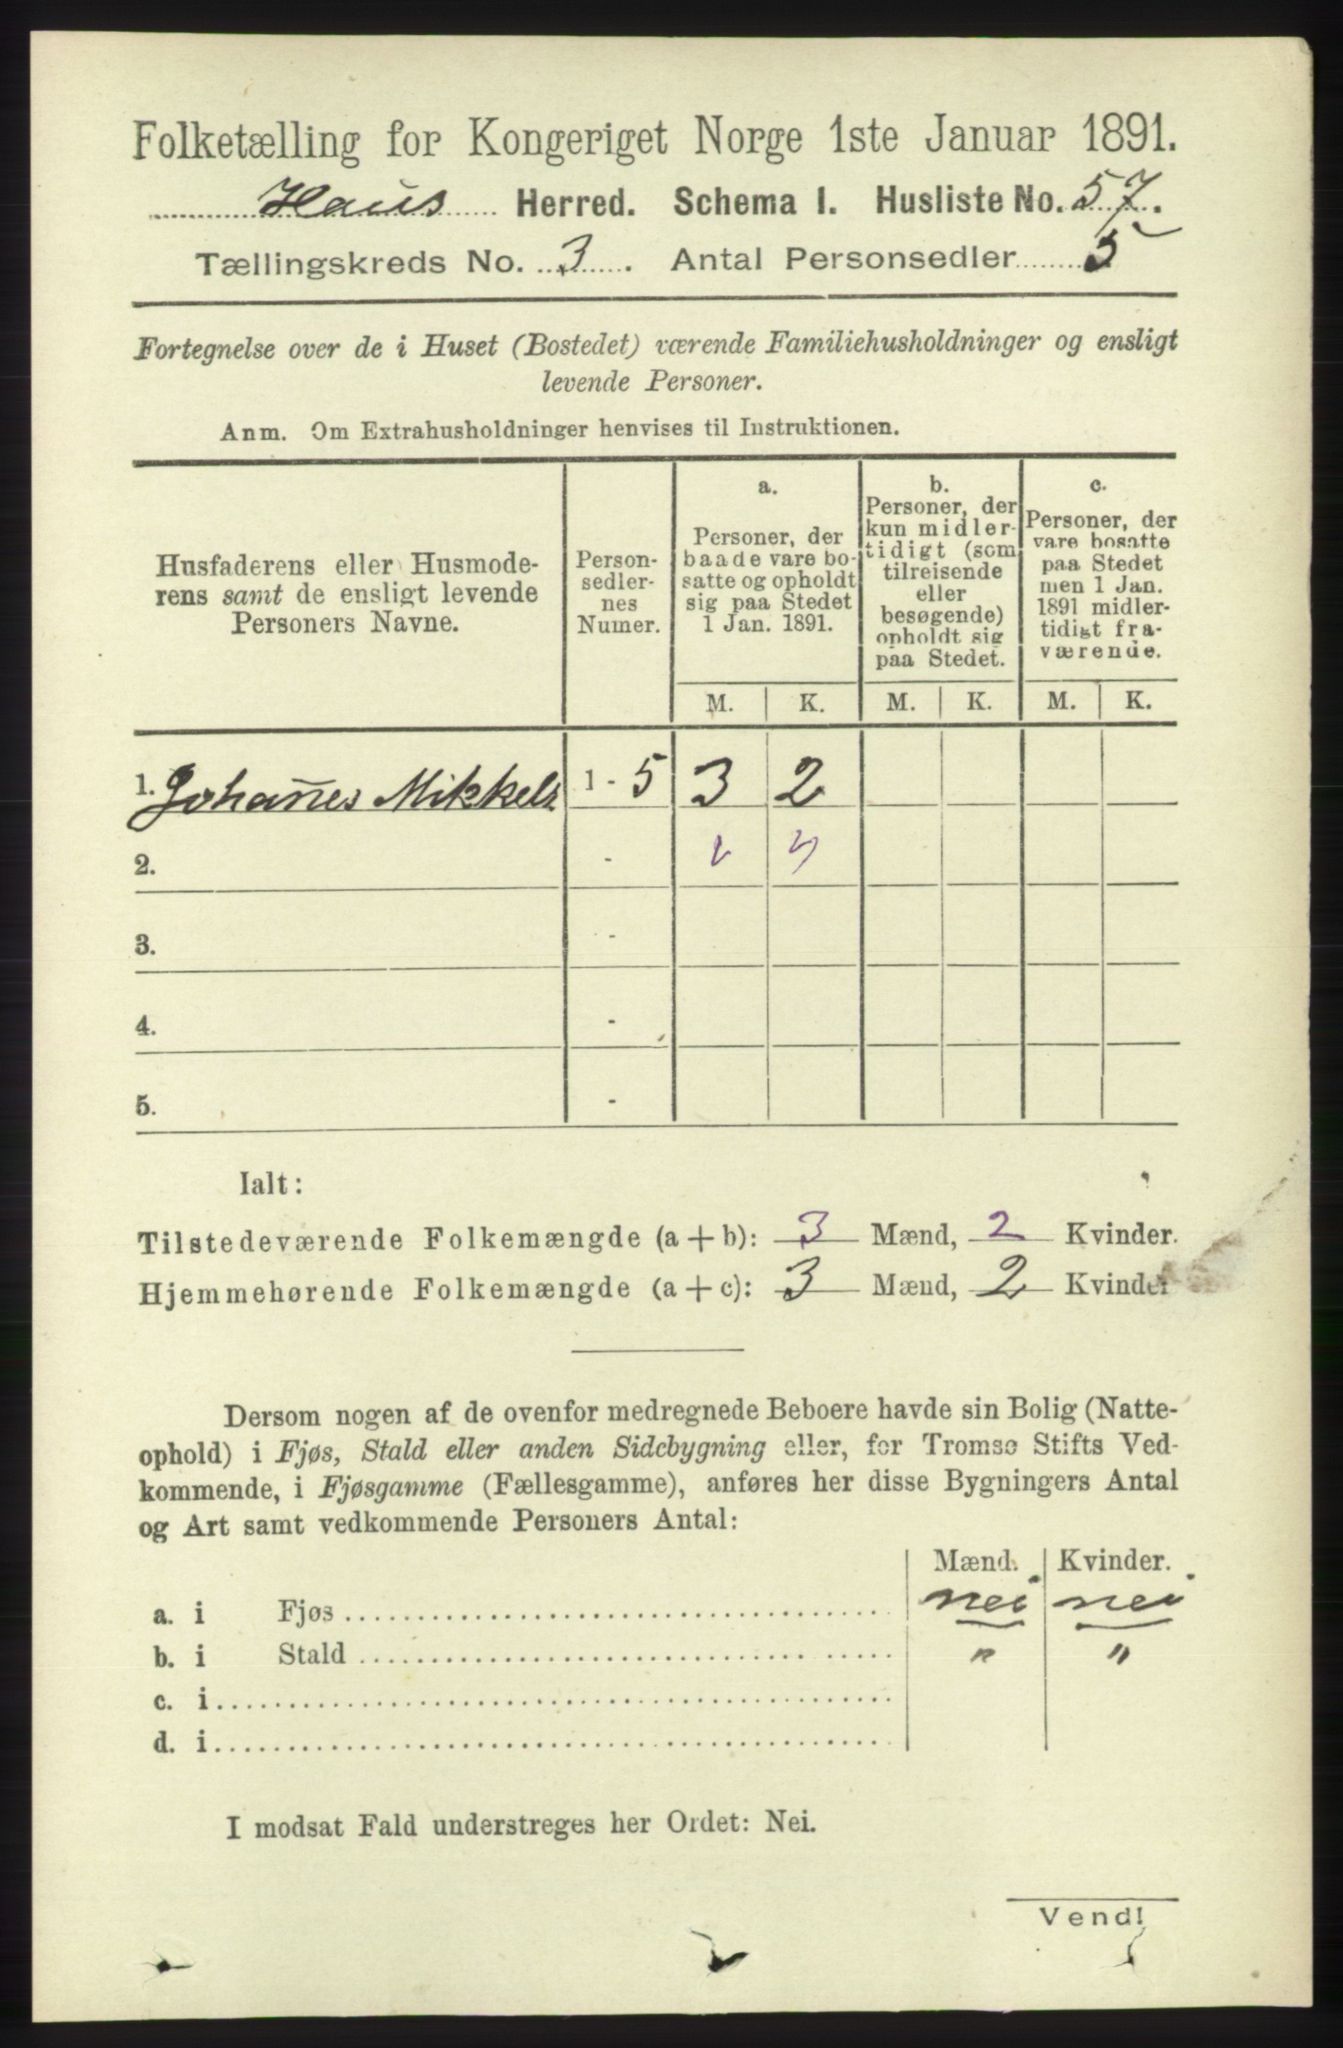 Folketælling for Kongeriget Norge 1ste Januar 1891.
Haus Herred. Schema I. Husliste No. 57.
Tællingskreds No. 3. Antal Personsedler 5
Fortegnelse over de i Huset (Bostedet) værende Familiehusholdninger og ensligt
levende Personer.
Anm. Om Extrahusholdninger henvises til Instruktionen.
Husfaderens eller Husmode-
rens samt de ensligt levende
Personers Navne.
Person-
sedler-
nes
Numer.
a.
Personer, der
baade vare bo-
satte og opholdt
sig paa Stedet
1 Jan. 1891.
b.
Personer, der
kun midler-
tidigt (som
tilreisende
eller
besøgende)
opholdt sig
paa Stedet.
c.
Personer, der
vare bosatte
paa Stedet
men 1 Jan.
1891 midler-
tidigt fra-
værende.
M. K. M. K. M. K.
1. Johan̄es Mikkels 1 - 5 3 2
2. -
3. -
4. -
5. -
Ialt:
Tilstedeværende Folkemængde (a + b): 3 Mænd, 2 Kvinder.
Hjemmehørende Folkemængde (a + c): 3 Mænd, 2 Kvinder
Dersom nogen af de ovenfor medregnede Beboere havde sin Bolig (Natte-
ophold) i Fjøs, Stald eller anden Sidebygning eller, for Tromsø Stifts Ved-
kommende, i Fjøsgamme (Fællesgamme), anføres her disse Bygningers Antal
og Art samt vedkommende Personers Antal:
Mænd. Kvinder.
a. i Fjøs nei nei
b. i Stald " "
c. i
d. i
I modsat Fald understreges her Ordet: Nei.
Vend!